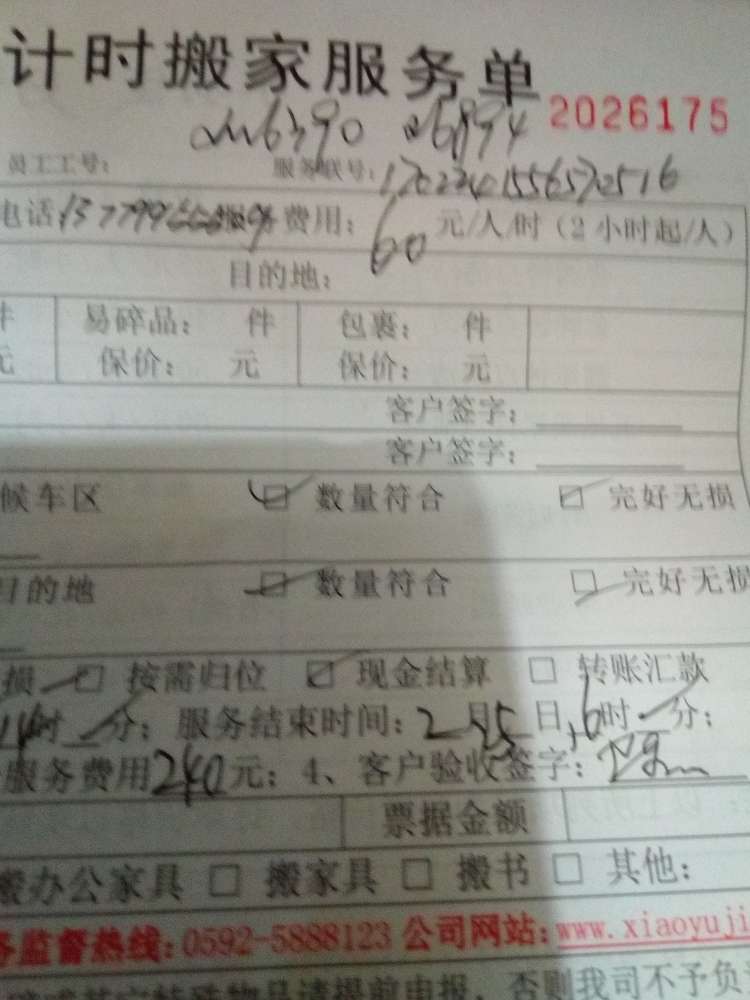 计时搬家服务单
2026175
员工工号: 服务联号:
电话 费用: 60 元/人/时（2小时起/人）
目的地:
件 易碎品: 件 包裹: 件
元 保价: 元 保价: 元
客户签字:
客户签字:
候车区 数量符合 完好无损
目的地 数量符合 完好无损
损 按需归位 现金结算 转账汇款
14时 分; 服务结束时间: 2月 日 时 分;
服务费用240元; 4、客户验收签字:
票据金额
搬办公家具 搬家具 搬书 其他:
务监督热线: 0592-5888123 公司网站: www.xiaoyuji
品请提前申报, 否则我司不予负